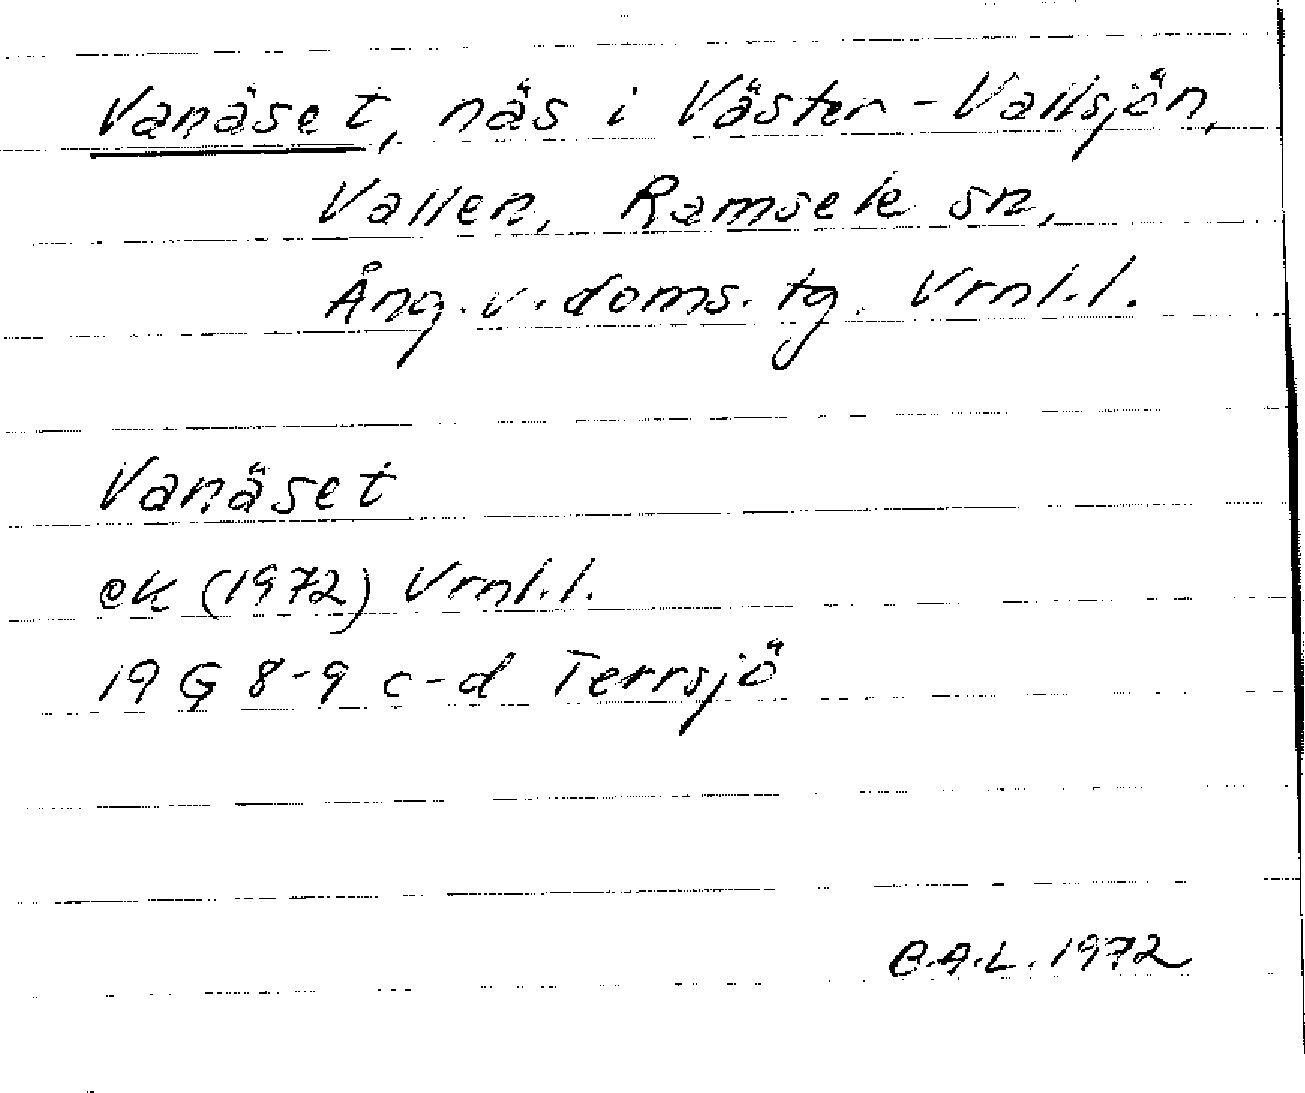 Vanäset, näs i Väster-Vallsjön,
Vallen, Ramsele sn,
Ång. v. doms. tg. Vrnl.l.
Vanäset
ek (1972) Vrnl.l.
19 G 8-9 c-d Terrsjö
C.A.L. 1972